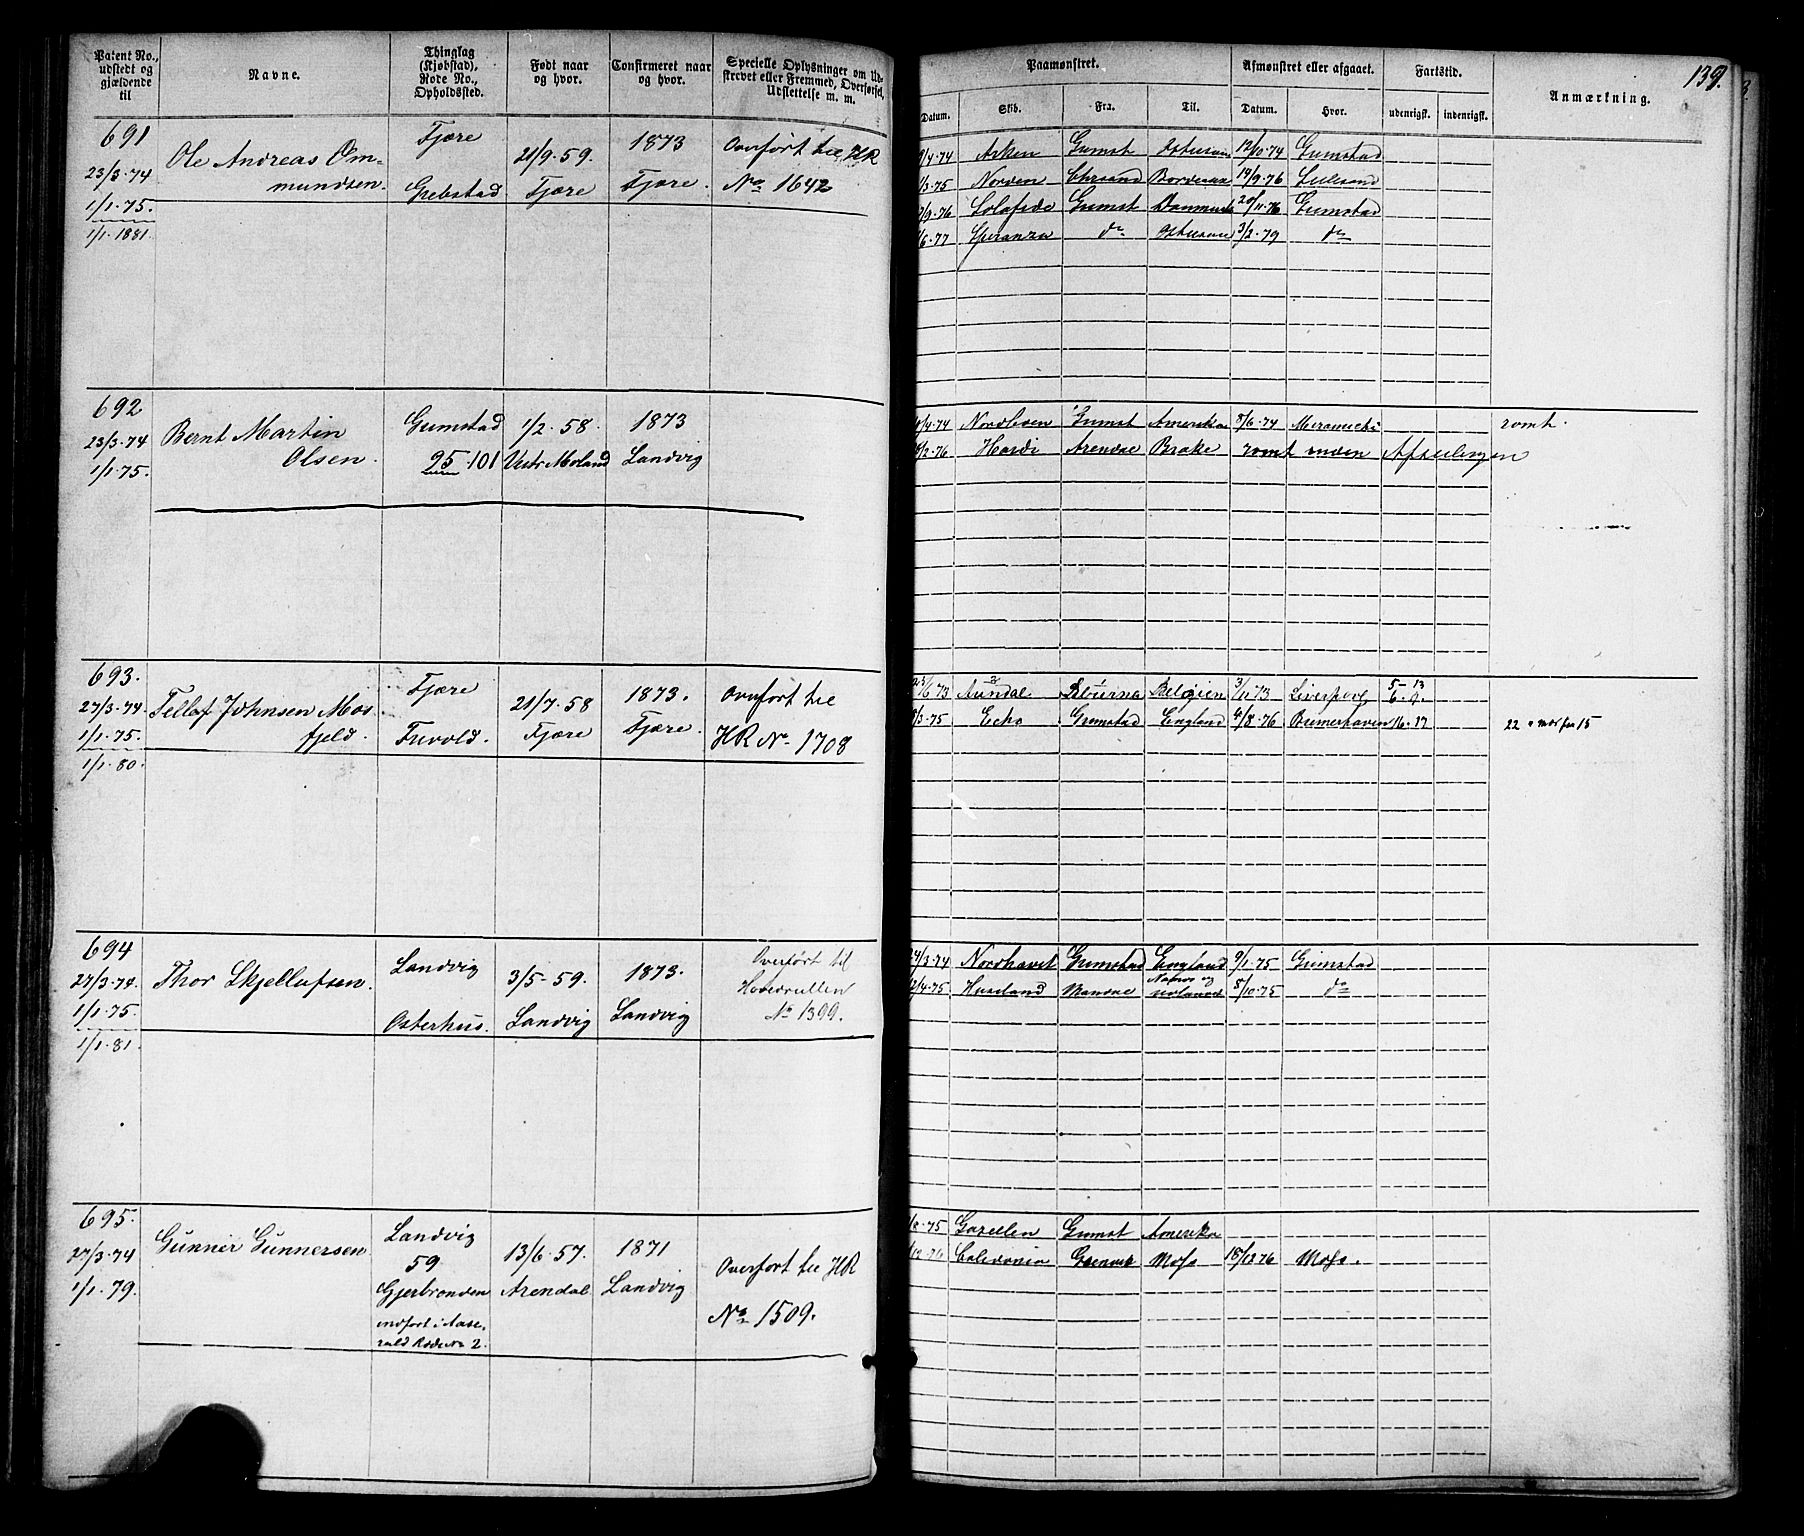 Patent No., udstedt og gjældende til
Navne.
Thinglag (Kjøbstad), Rode No., Opholdssted.
Født naar og hvor.
Confirmeret naar og hvor.
Specielle Oplysninger om Udskrevet eller Fremmed, Overførsel, Udslettelse m. m.
691
23/3-74
1/1-75.
1/1-1881.
Ole Andreas Om-
mundsen.
Fjære
Grebstad
21/9-59.
Fjære
1873
Fjære.
Overført til HR
No 1642
692
23/3-74
1/1-75.
Bernt Martin
Olsen.
Grimstad
25-101
1/2-58.
Vestr. Moland
1873
Landvig
693.
27/3-74.
1/1-75.
1/1-80.
Tellef Johnsen Mos
fjeld.
Fjære
Fuvold.
21/7-58
Fjære
1873.
Fjære.
Overført til
HR No 1708
694
27/3-74.
1/1-75.
1/1-81.
Thor Skjellufsen.
Landvig
Osterhus.
3/5-59.
Landvig
1873.
Landvig
Overført til
Hovedrullen
No 1399.
695.
27/3-74
1/1-79.
Gunner Gunnersen
Landvig
59
Gjerbronden
indført i Aase-
rald Rode No 2.
13/6-57.
Arendal
1871
Landvig
Overført til HR
No 1509.
139.
Paamønstret.
Afmønstret eller afgaaet.
Fartstid.
Anmærkning.
Datum.
Skib.
Fra.
Til.
Datum.
Hvor.
udenrigsk.
indenrigsk.
/4-74 Arken Grmst Østersøen 12/10-74 Grimstad
/3-75 Norden Chrsand Bordeaux 14/9-76 Lillesand
/9-76 Solafide Grmst Danmark 20/11-76 Grimstad
/6-77 Speranza do Østersøen 3/2-79 do
/4-74 Nordleven Grmst Amerika 5/6-74 Miramichi rømt.
/2-76 Hardi Arendal Brake rømt inden Afseilingen
/6-73 Arendal Belgien 3/11-73 Liverpool 5-13 6-9.
/3-75 Echo Grimstad England 4/8-76 Bremerhaven 16-17 22 » Mos før 15
27/3-74 Nordhavet Grimstad England 9/1-75 Grimstad
2/4-75 Huseland Mandal 5/10-75 do
-75 Gazellen Grmst Amerika
Caledonia Moss 18/12 76 Moss.